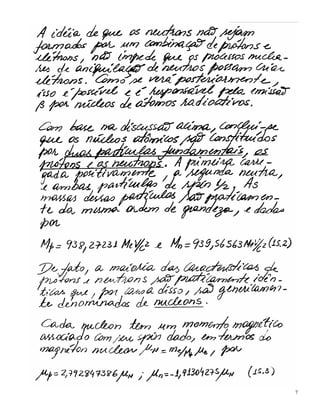 A idéia de que os neutrons não sejam
formados por um combinação de prótons e
elétrons, não impede que os processos nuclea-
res de aniquilação de neutros possam criar
elétrons. Como se verá posteriormente,
isso é possível e é responsável pela emissão
β por núcleos de átomos radioativos.
Com base na discussão acima, conclui-se
que os núcleos atômicos são constituídos
por duas partículas fundamentais, os
prótons e os neutrons. A primeira carre-
gada positivamente, a segunda neutra,
e ambas, partículas de spin 1/2. As
massas dessas partículas são praticamen-
te da mesma ordem de grandeza, e dadas
por
Mp = 938,27231 MeV/c² e Mn = 939,56563 MeV/c² (15.2)
De fato, a maioria das características de
prótons e neutrons são praticamente idên-
ticas que, por causa disso, são genericamen-
te denominados de nucleons.
Cada nucleon tem um momento magnético
associado com seu spin dado, em termos do
magnéton nuclear, μN = me/Mp μB, por
μp = 2,792847386 μN ; μn = -1,91304275 μN (15.3)
7